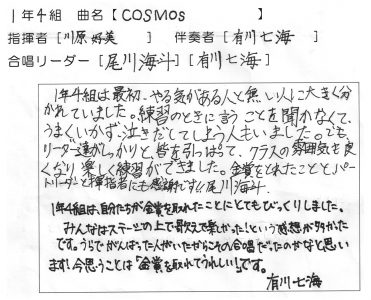 1年4組 曲名【COSMOS 】
指揮者[川原 好美 ] 伴奏者[有川七海 ]
合唱リーダー[尾川海斗][有川七海]
1年4組は最初、やる気がある人と無い人に大きく分
かれていました。練習のときに言うことを聞かなくて、
うまくいかず、泣きだしてしまう人もいました。でも、
リーダー達がしっかりと、皆を引っぱって、クラスの雰囲気も良
くなり楽しく練習ができました。金賞をとれたことと、パー
トリーダーと指揮者にも感謝です!! 尾川海斗.
1年4組は、自分たちが金賞を取れたことにとてもびっくりしました。
みんなはステージの上で歌えて楽しかった!という感想が多かった
です。うらでがんばった人がいたからこその合唱だったのかなと思い
ます!今思うことは「金賞を取れてうれしい!」です。
有川七海